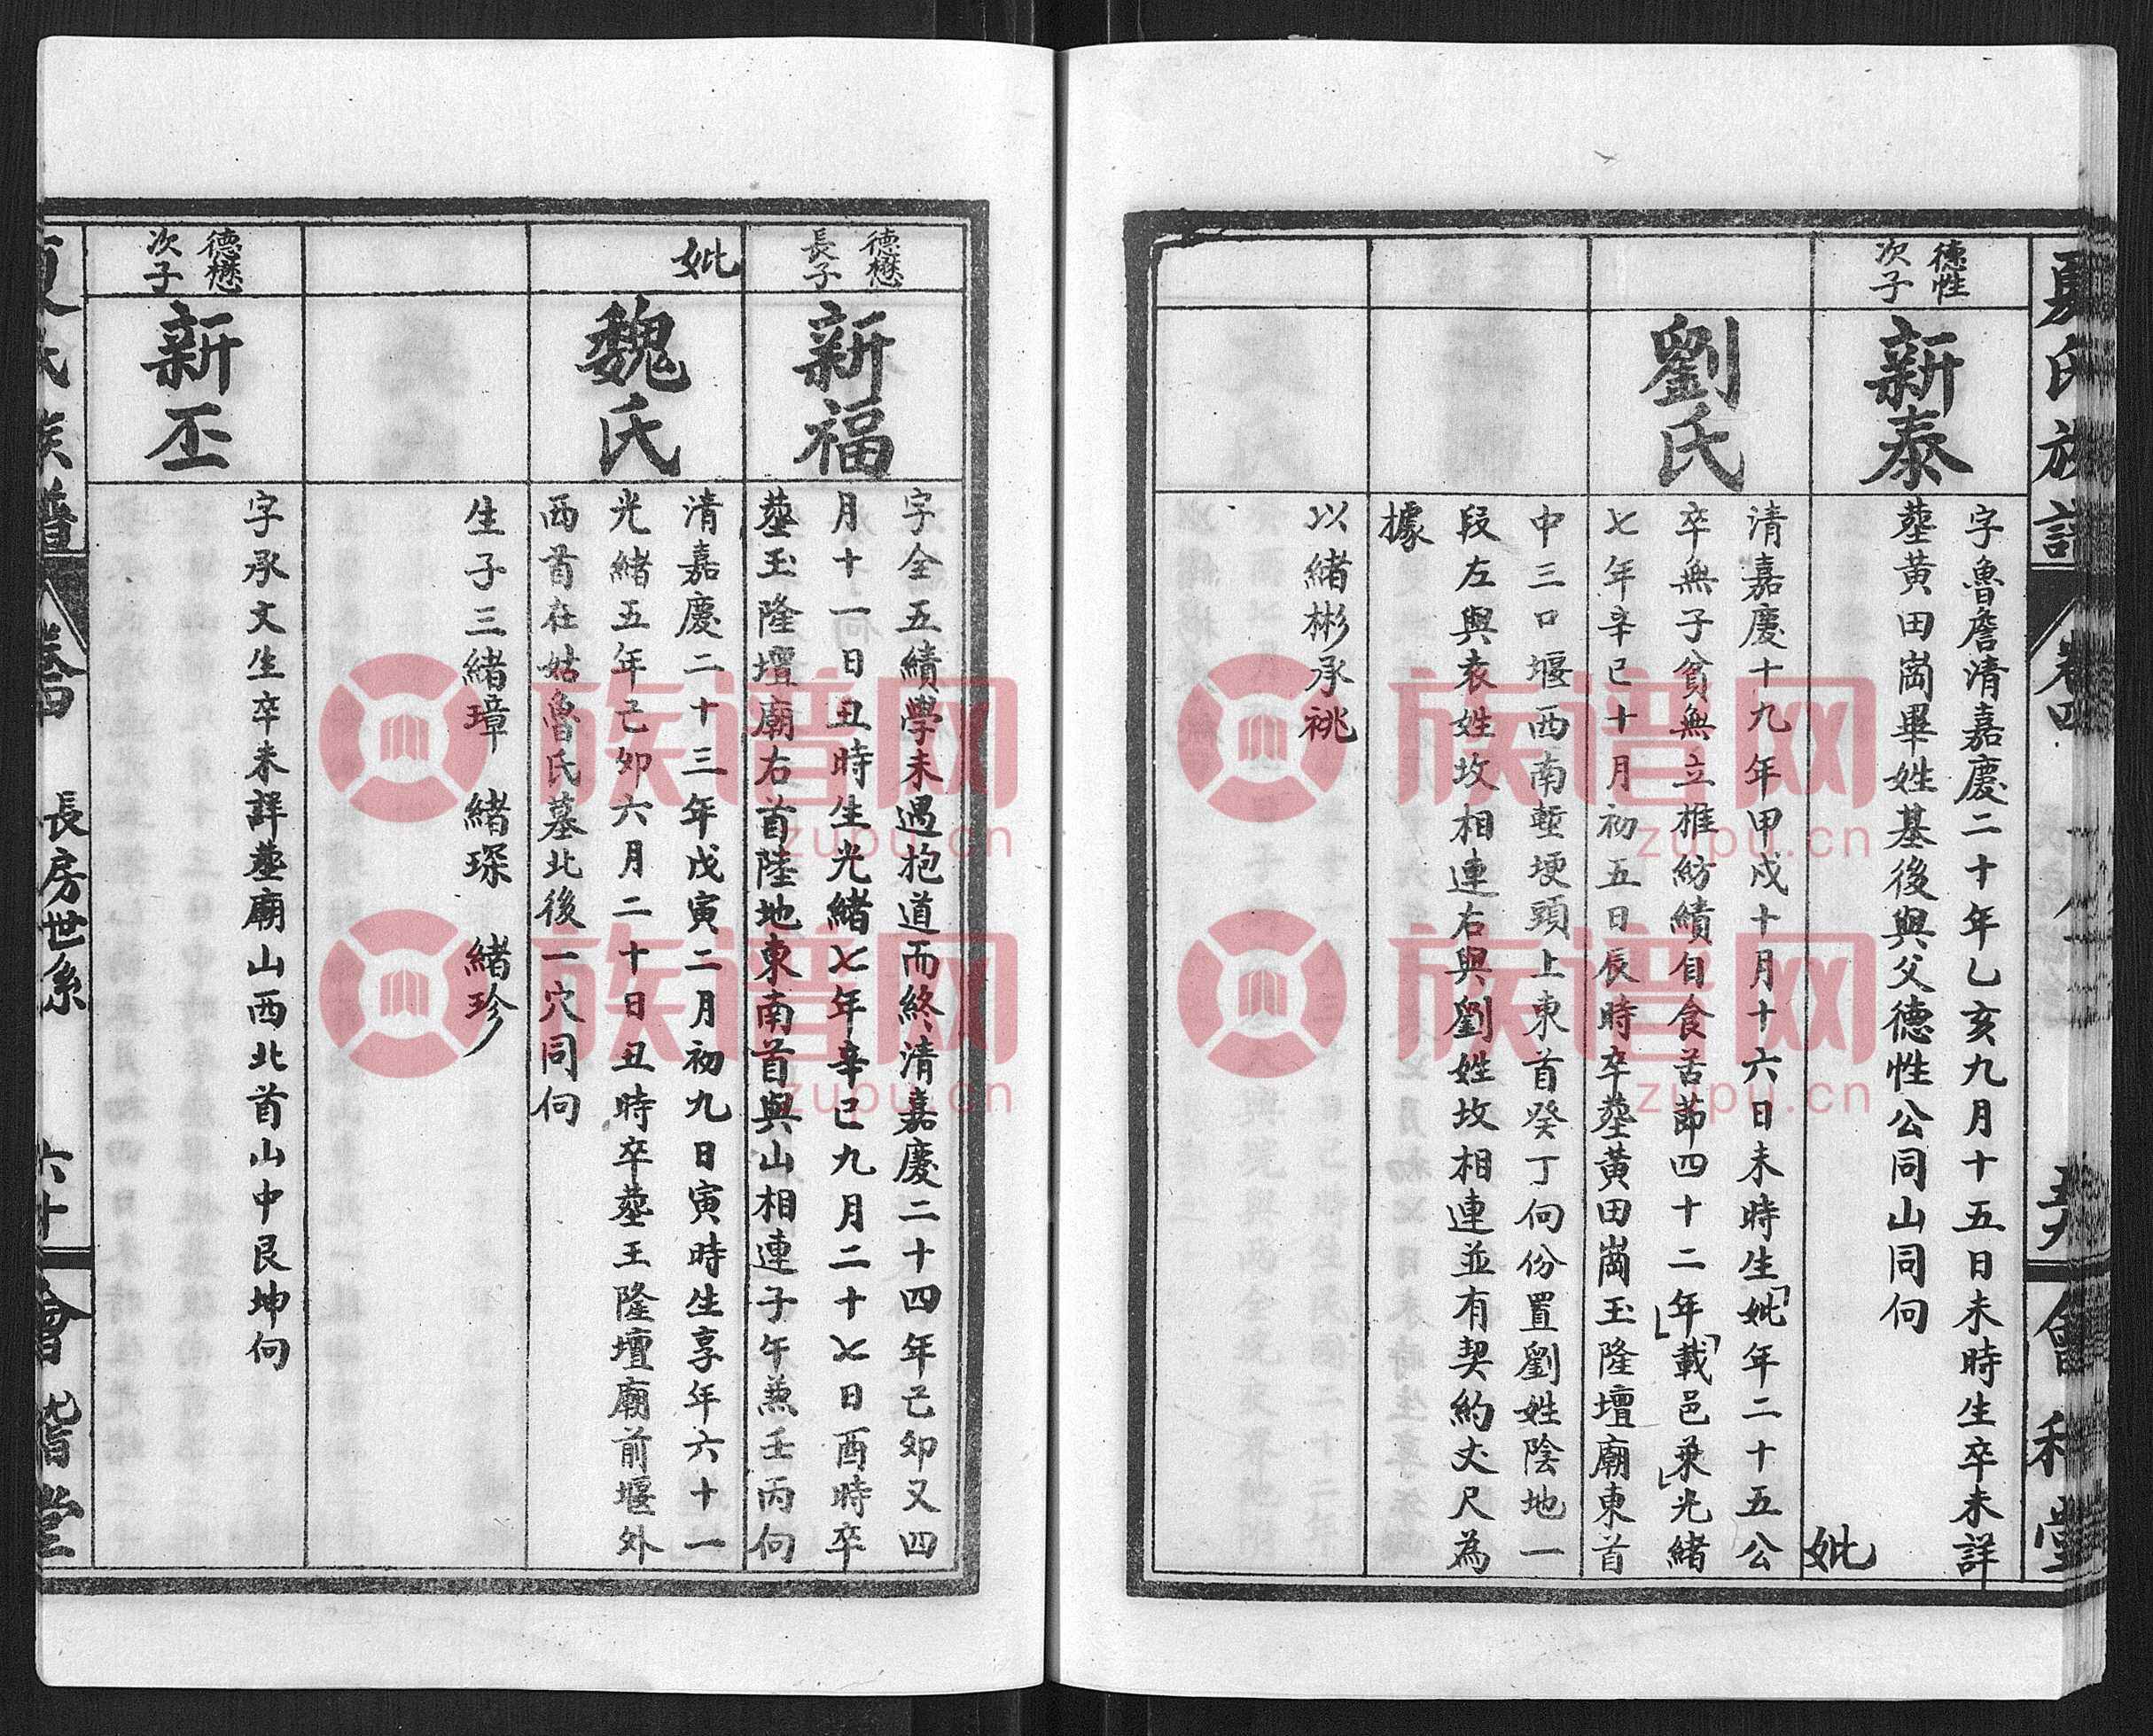 夏氏族譜
卷四
會稽堂
德性
次子
新泰
字魯詹清嘉慶二十年乙亥九月十五日未時生卒未詳
塟黃田崗畢姓基後與父德性公同山同向
妣
劉氏
清嘉慶十九年甲戌十月十六日未時生「妣年二十五公
卒無子貧無立椎紡績自食苦節四十二年」「載邑乘」光緒
七年辛巳十月初五日辰時卒塟黃田崗玉隆壇廟東首
中三口堰西南堙埂頭上東首癸丁向份置劉姓陰地一
段左與袁姓坟相連右與劉姓坟相連並有契約丈尺為
據
以緒彬承祧
德懋
長子
新福
字全五績學未遇抱道而終清嘉慶二十四年己卯又四
月十一日丑時生光緒七年辛巳九月二十七日酉時卒
塟玉隆壇廟右首陸地東南首與山相連子午兼壬丙向
妣
魏氏
清嘉慶二十三年戊寅二月初九日寅時生享年六十一
光緒五年己卯六月二十日丑時卒塟王隆壇廟前堰外
西首在姑魯氏墓北後一穴同向
生子三緒璋 緒琛 緒珍
德懋
次子
新丕
字承文生卒未詳塟廟山西北首山中艮坤向
夏氏族譜
卷四
長房世系
六十
會稽堂
族谱网
zupu.cn
族谱网
zupu.cn
族谱网
zupu.cn
族谱网
zupu.cn